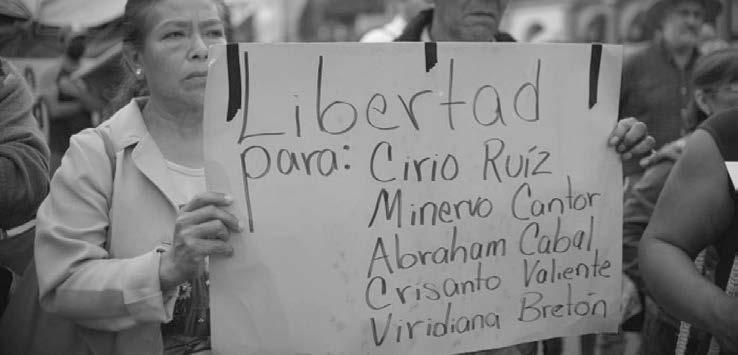 Libertad
para: Cirio Ruíz
Minervo Cantor
Abraham Cabal
Crisanto Valiente
Viridiana Bretón